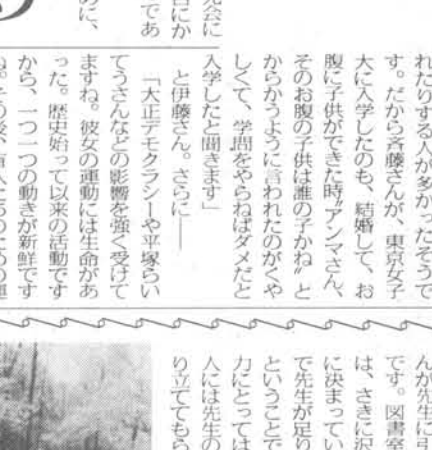 れたりする人が多かったそうで
す。だから斉藤さんが、東京女子
大に入学したのも、結婚して、お
腹に子供ができた時〝アンマさん、
そのお腹の子供は誰の子かね〟と
からかうように言われたのがくや
しくて、学問をやらねばダメだと
入学したと聞きます」
と伊藤さん。さらに──
「大正デモクラシーや平塚らい
てうさんなどの影響を強く受けて
ますね。彼女の運動には生命があ
った。歴史始って以来の活動です
から、一つ一つの動きが新鮮です
んが先生に引
です。図書室
は、さきに沢
に決まってい
で先生が足り
ということで
力にとっては
人には先生の
り立ててもら